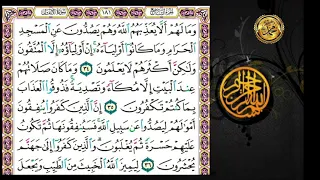 وَمَا لَهُمْ أَلَّا يُعَذِّبَهُمُ ٱللَّهُ وَهُمْ يَصُدُّونَ عَنِ ٱلْمَسْجِدِ
ٱلْحَرَامِ وَمَا كَانُوٓا۟ أَوْلِيَآءَهُۥٓ إِنْ أَوْلِيَآؤُهُۥٓ إِلَّا ٱلْمُتَّقُونَ
وَلَٰكِنَّ أَكْثَرَهُمْ لَا يَعْلَمُونَ ٣٤ وَمَا كَانَ صَلَاتُهُمْ
عِندَ ٱلْبَيْتِ إِلَّا مُكَآءً وَتَصْدِيَةً فَذُوقُوا۟ ٱلْعَذَابَ
بِمَا كُنتُمْ تَكْفُرُونَ ٣٥ إِنَّ ٱلَّذِينَ كَفَرُوا۟ يُنفِقُونَ
أَمْوَٰلَهُمْ لِيَصُدُّوا۟ عَن سَبِيلِ ٱللَّهِ فَسَيُنفِقُونَهَا ثُمَّ تَكُونُ
عَلَيْهِمْ حَسْرَةً ثُمَّ يُغْلَبُونَ وَٱلَّذِينَ كَفَرُوٓا۟ إِلَىٰ جَهَنَّمَ
يُحْشَرُونَ ٣٦ لِيَمِيزَ ٱللَّهُ ٱلْخَبِيثَ مِنَ ٱلطَّيِّبِ وَيَجْعَلَ